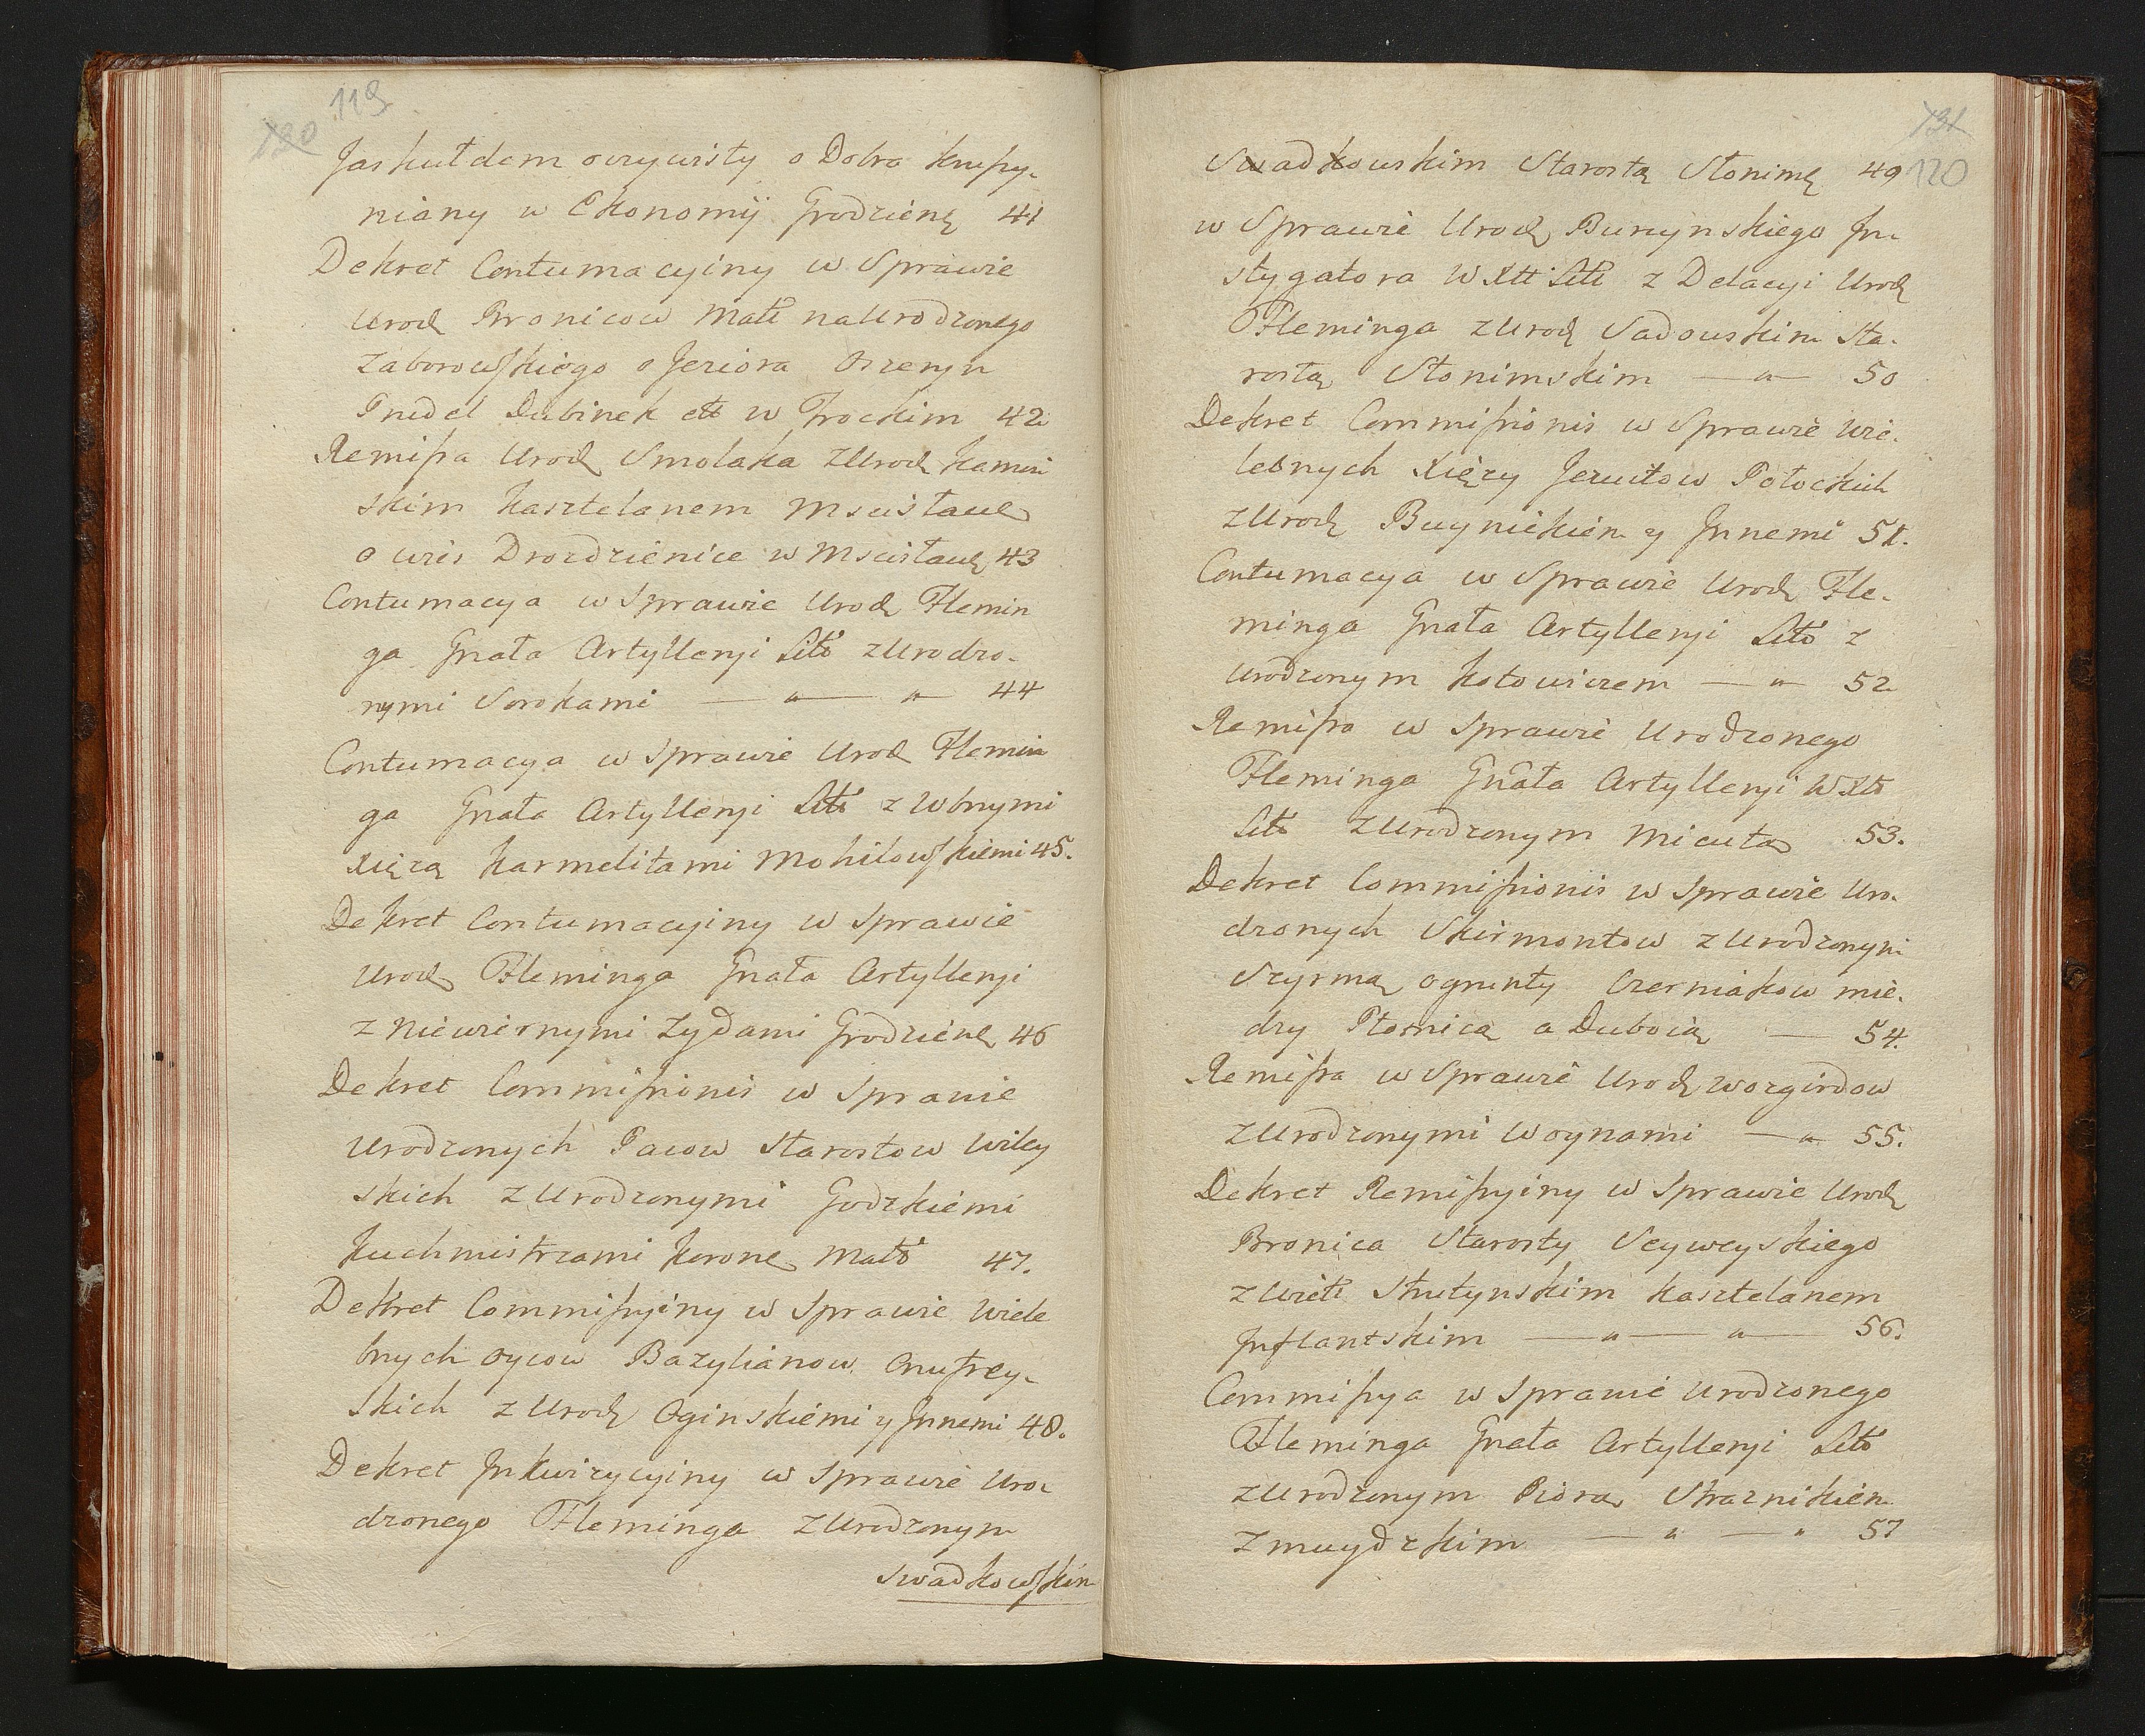 119
120
Jaskułdem oczywisty o Dobra Krupy-
niany w Ekonomij Grodzienę 41
Dekret Contumacyiny w Sprawie
Urodz Broniców Małż na Urodzonego
Zaborowskiego o Jeziora Orzeryn
Dubinek ett w Trockim 42
Remissa Urodz Smolaka z Urodz Kamin
skim Kasztelanem Mscisławę
o wies Drozdzienice w Mscisławę 43
Contumacya w Sprawie Urodz Flemin
ga Gnała Artylleryi Litō z Urodzo-
nymi Sorokami — „ — „ 44
Contumacya w Sprawie Urodz Flemin
ga Gnała Artylleryi Litō z Wbnymi
Xięzą Karmelitami Mohilowskiemi 45.
Dekret Contumacyiny w Sprawie
Urodz Fleminga Gnała Artylleryi
z Niewiernymi Zydami Grodzienę 46
Dekret Commissionis w Sprawie
Urodzonych Pacow Starostow Wiley
skich z Urodzonymi Godzkiemi
Kuchmistrzami Koronę Małō 47.
Dekret Commissyiny w Sprawie Wiele
bnych Oycow Bazylianow Onufrey-
skich z Urodz Oginskiemi y Jnnemi 48.
Dekret Jnkwizycyiny w Sprawie Uro-
dzonego Fleminga z Urodzonym
Swadkowskim
121
120
Swadkowskim Starostą Słonimę 49
w Sprawie Urodz Burzynskiego Jn-
stygatora W Xtt Litt z Delacyi Urodz
Fleminga z Urodz Sadowskim Sta-
rostą Słonimskim — „ — 50
Dekret Commissionis w Sprawie Wie-
lebnych Xięzy Jezuitow Połockich
z Urodz Buynickim y Jnnemi 51.
Contumacya w Sprawie Urodz Fle-
minga Gnała Artylleryi Litō z
Urodzonym Kotowiczem — „ 52
Remissa w Sprawie Urodzonego
Fleminga Gnała Artylleryi W Xtt
Litt z Urodzonym Micutą 53.
Dekret Commissionis w Sprawie Uro-
dzonych Skirmontow z Urodzonym
Szyrmą o grunty Czerniakow mie-
dzy Płosnicą a Duboią — 54.
Remissa w Sprawie Urodz Wozgirdow
z Urodzonymi Woynami — „ 55.
Dekret Remissyiny w Sprawie Urodz
Bronica Starosty Scyweyskiego
z Wielt Strutynskim Kasztelanem
Jnflantskim — „ — „ — 56.
Commissya w Sprawie Urodzonego
Fleminga Gnała Artylleryi Litō
z Urodzonym Piorą Straznikiem
Zmuydzkim — „ — „ 57